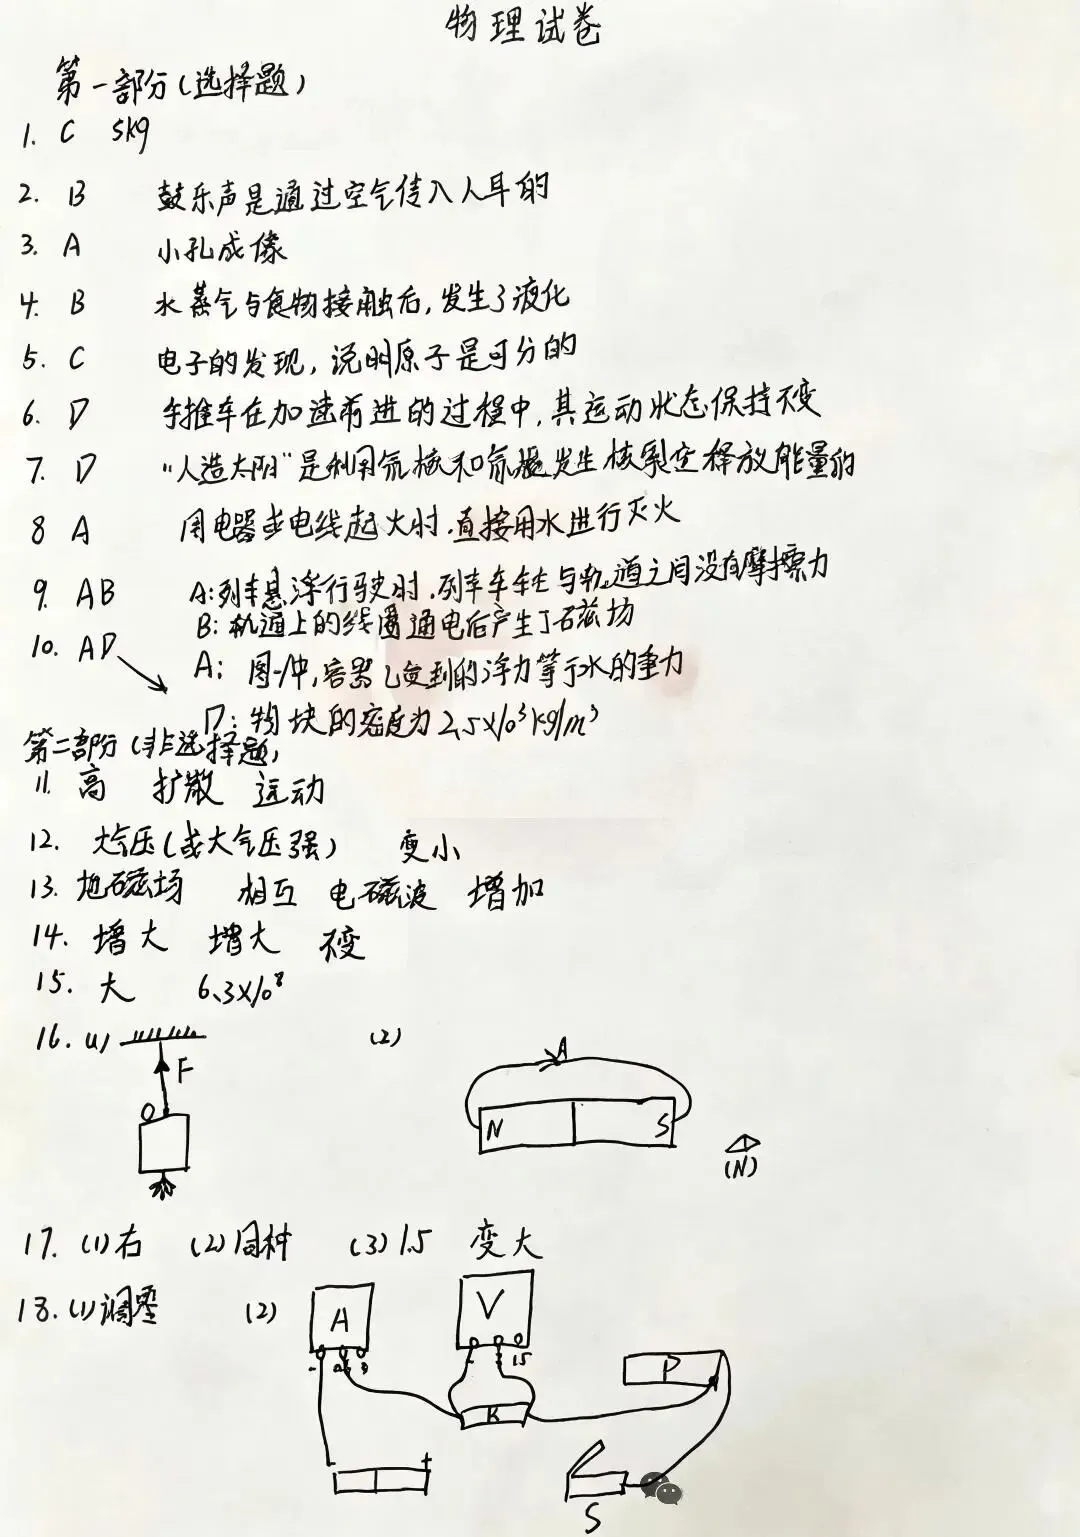 物理试卷
第一部分(选择题)
1. C 5kg
2. B 鼓乐声是通过空气传入人耳的
3. A 小孔成像
4. B 水蒸气与食物接触后,发生了液化
5. C 电子的发现,说明原子是可分的
6. D 手推车在加速前进的过程中,其运动状态保持不变
7. D "人造太阳"是利用氘核和氚核发生核裂变释放能量的
8 A 用电器或电线起火时,直接用水进行灭火
9. AB A:列车悬浮行驶时,列车车体与轨道之间没有摩擦力
B:轨道上的线圈通电后产生了磁场
10. AD A: 图甲中,容器乙受到的浮力等于水的重力
D:物块的密度为2.5×10³kg/m³
第二部分(非选择题)
11. 高 扩散 运动
12. 大气压(或大气压强) 变小
13. 地磁场 相互 电磁波 增加
14. 增大 增大 不变
15. 大 6.3×10⁸
16. (1) (2)
F
O
A
N S
(N)
17. (1)右 (2)同种 (3)1.5 变大
18. (1)调零 (2)
A V
- 0.6 3 - 3 15
P
R
- +
S